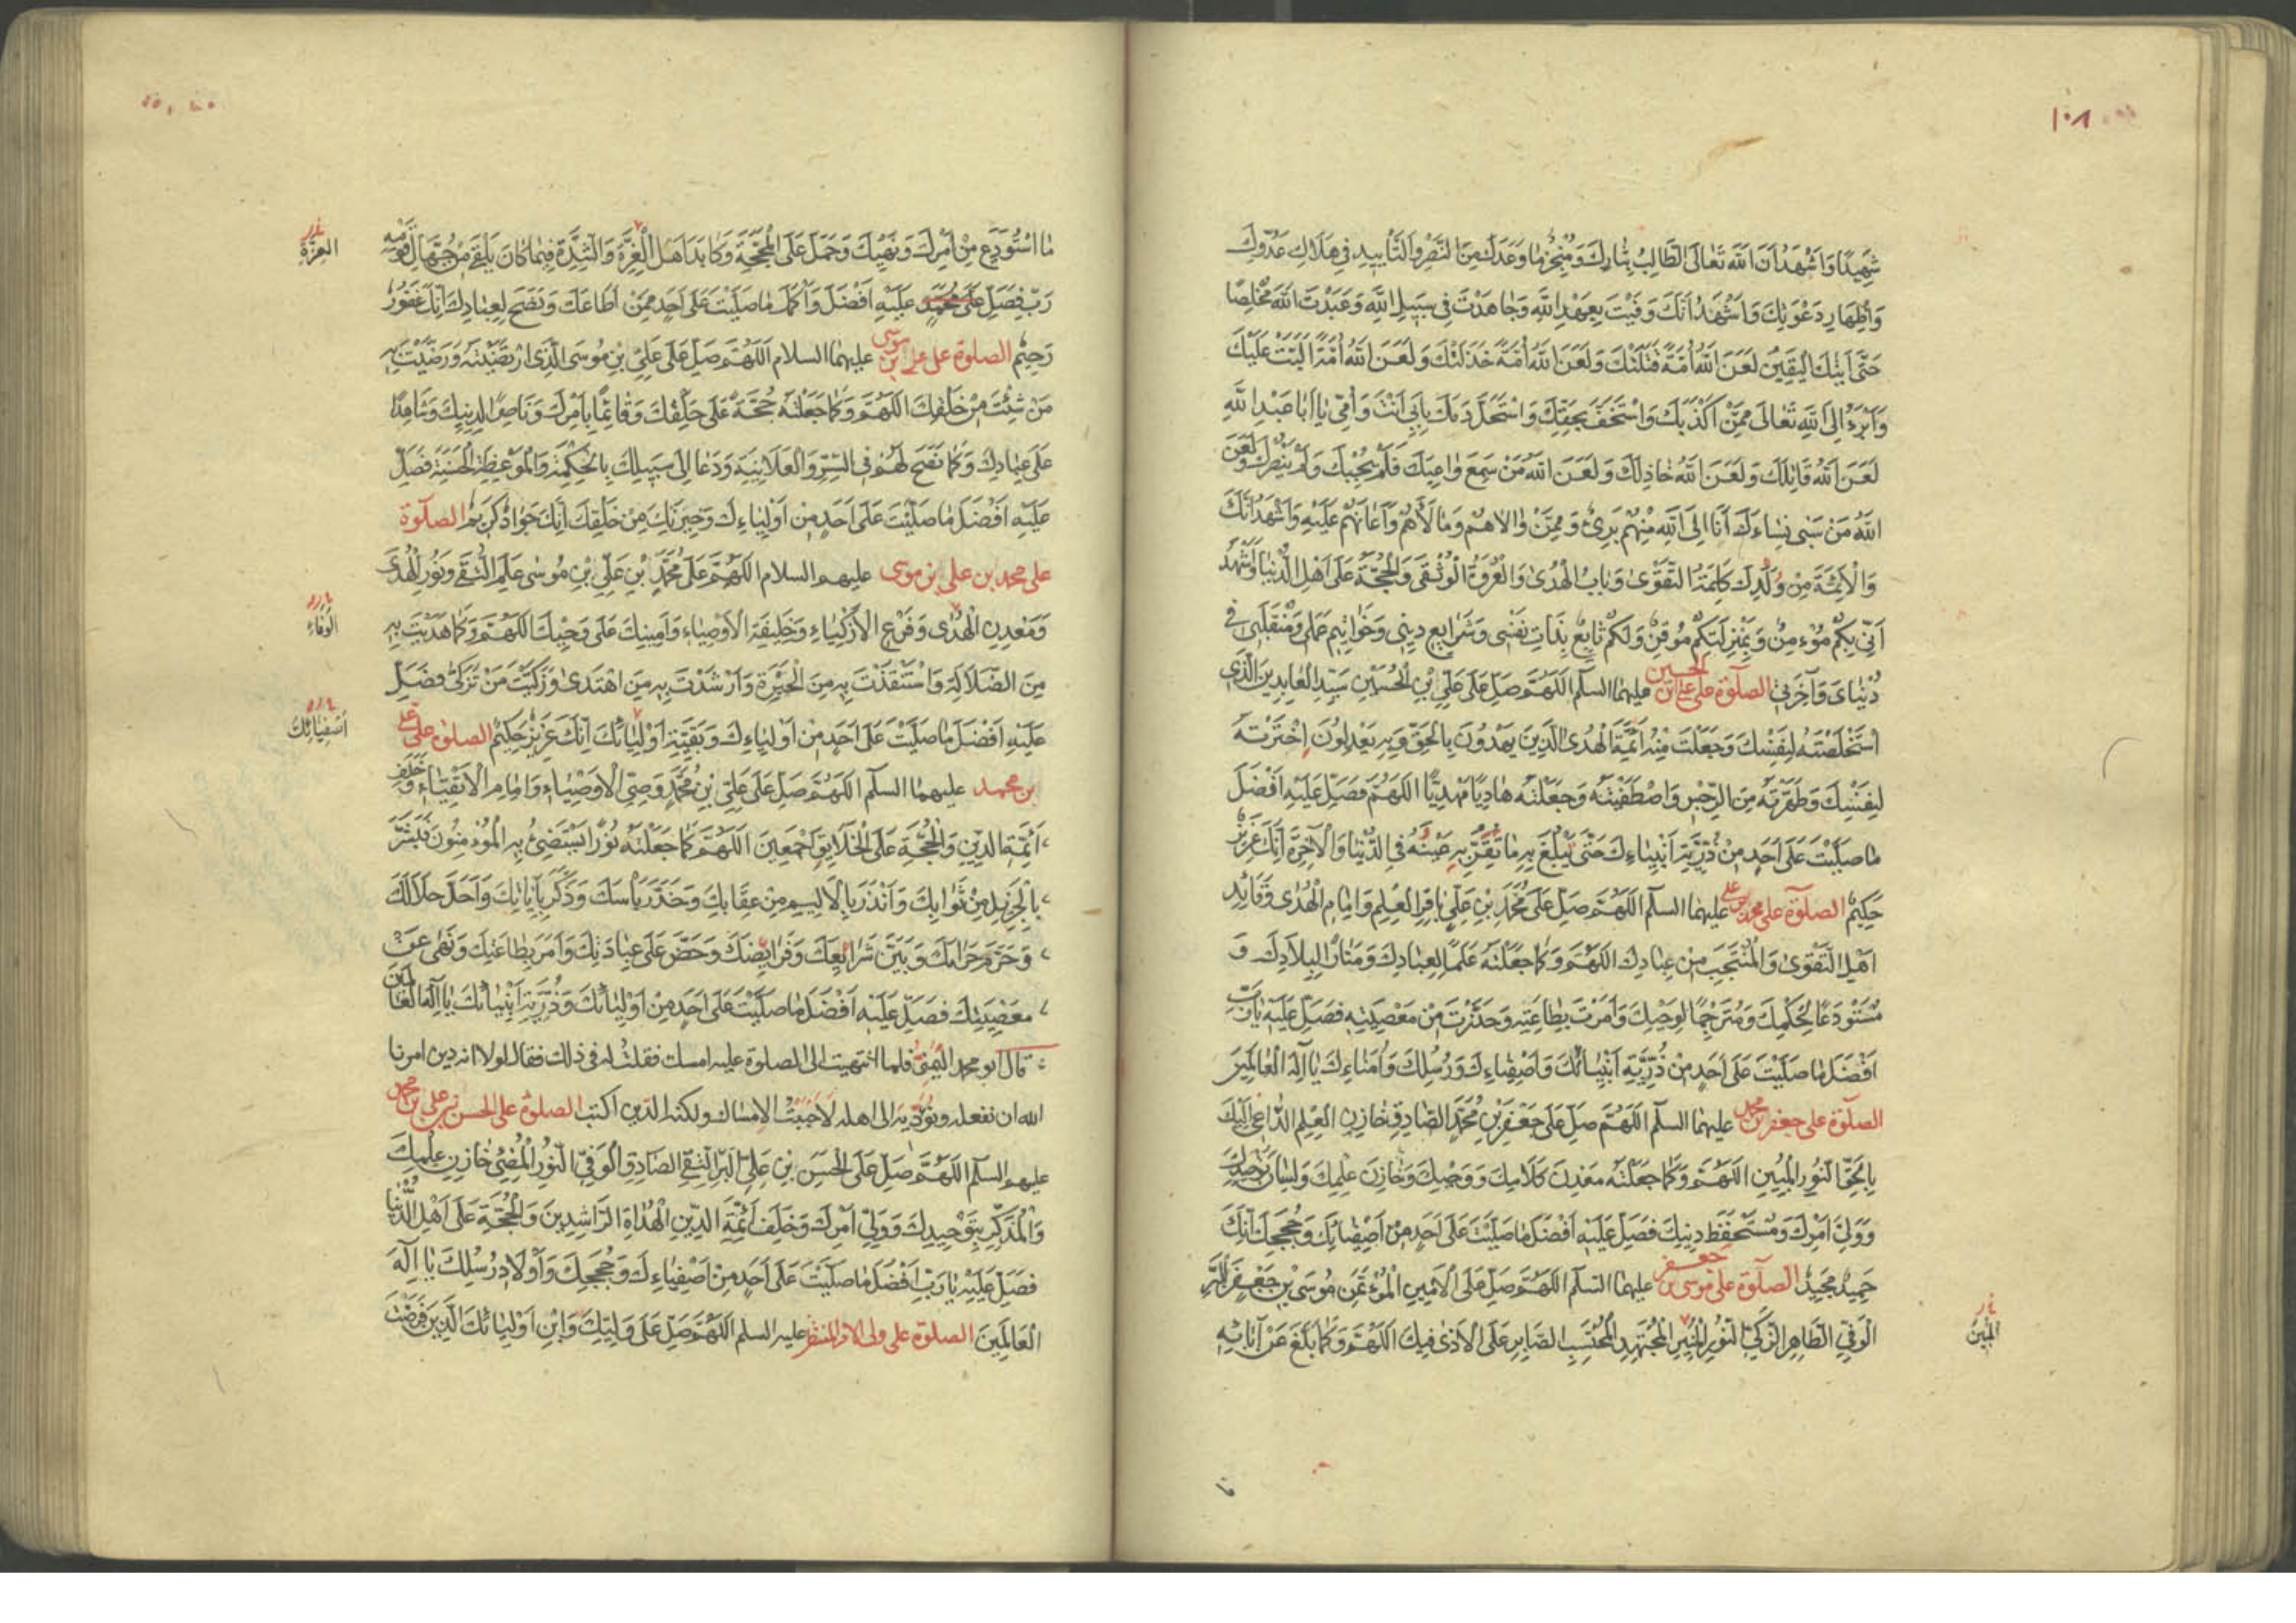 ١٠٨
شَهِيدًا وَاَشْهَدُ اَنَّ اللّٰهَ تَعَالَى الطَّالِبُ بِثَارِكَ وَمُنْجِزٌ مَا وَعَدَكَ مِنَ النَّصْرِ وَالتَّأْيِيدِ فِي هَلَاكِ عَدُوِّكَ
وَاِظْهَارِ دَعْوَتِكَ وَاَشْهَدُ اَنَّكَ وَفَيْتَ بِعَهْدِ اللّٰهِ وَجَاهَدْتَ فِي سَبِيلِ اللّٰهِ وَعَبَدْتَ اللّٰهَ مُخْلِصًا
حَتّٰى اَتٰيكَ الْيَقِينُ لَعَنَ اللّٰهُ اُمَّةً قَتَلَتْكَ وَلَعَنَ اللّٰهُ اُمَّةً خَذَلَتْكَ وَلَعَنَ اللّٰهُ اُمَّةً اَلَّبَتْ عَلَيْكَ
وَاَبْرَءُ اِلَى اللّٰهِ تَعَالَى مِمَّنْ اَكْذَبَكَ وَاسْتَخَفَّ بِحَقِّكَ وَاسْتَحَلَّ دَمَكَ بِاَبِي اَنْتَ وَاُمِّي يَا اَبَا عَبْدِ اللّٰهِ
لَعَنَ اللّٰهُ قَاتِلَكَ وَلَعَنَ اللّٰهُ خَاذِلَكَ وَلَعَنَ اللّٰهُ مَنْ سَمِعَ وَاعِيَتَكَ فَلَمْ يُجِبْكَ وَلَمْ يَنْصُرْكَ وَلَعَنَ
اللّٰهُ مَنْ سَبٰى نِسَاءَكَ اَنَا اِلَى اللّٰهِ مِنْهُمْ بَرِئٌ وَمِمَّنْ وَالَاهُمْ وَمَالَأَهُمْ وَاَعَانَهُمْ عَلَيْهِ وَاَشْهَدُ اَنَّكَ
وَالْاَئِمَّةَ مِنْ وُلْدِكَ كَلِمَةُ التَّقْوٰى وَبَابُ الْهُدٰى وَالْعُرْوَةُ الْوُثْقٰى وَالْحُجَّةُ عَلٰى اَهْلِ الدُّنْيَا وَاَشْهَدُ
اَنِّي بِكُمْ مُؤْمِنٌ وَبِمَنْزِلَتِكُمْ مُوقِنٌ وَلَكُمْ تَابِعٌ بِذَاتِ نَفْسِي وَشَرَايِعِ دِينِي وَخَوَاتِيمِ عَمَلِي وَمُنْقَلَبِي فِي
دُنْيَايَ وَآخِرَتِي الصلٰوة على علي ابن الحسين عليهما السلام اَللّٰهُمَّ صَلِّ عَلٰى عَلِيِّ بْنِ الْحُسَيْنِ سَيِّدِ الْعَابِدِينَ الَّذِي
اسْتَخْلَصْتَهُ لِنَفْسِكَ وَجَعَلْتَ مِنْهُ اَئِمَّةَ الْهُدَى الَّذِينَ يَهْدُونَ بِالْحَقِّ وَبِهِ يَعْدِلُونَ اِخْتَرْتَهُ
لِنَفْسِكَ وَطَهَّرْتَهُ مِنَ الرِّجْسِ وَاصْطَفَيْتَهُ وَجَعَلْتَهُ هَادِيًا مَهْدِيًّا اَللّٰهُمَّ فَصَلِّ عَلَيْهِ اَفْضَلَ
مَا صَلَّيْتَ عَلٰى اَحَدٍ مِنْ ذُرِّيَّةِ اَنْبِيَاءِكَ حَتّٰى تَبْلُغَ بِهِ مَا تُقِرُّ بِهِ عَيْنَهُ فِي الدُّنْيَا وَالْآخِرَةِ اِنَّكَ عَزِيزٌ
حَكِيمٌ الصلٰوة على محمد بن علي عليهما السلام اَللّٰهُمَّ صَلِّ عَلٰى مُحَمَّدِ بْنِ عَلِيٍّ بَاقِرِ الْعِلْمِ وَاِمَامِ الْهُدٰى وَقَائِدِ
اَهْلِ التَّقْوٰى وَالْمُنْتَجَبِ مِنْ عِبَادِكَ اَللّٰهُمَّ وَكَمَا جَعَلْتَهُ عَلَمًا لِعِبَادِكَ وَمَنَارًا لِبِلَادِكَ وَ
مُسْتَوْدَعًا لِحِكْمَتِكَ وَمُتَرْجِمًا لِوَحْيِكَ وَاَمَرْتَ بِطَاعَتِهِ وَحَذَّرْتَ مِنْ مَعْصِيَتِهِ فَصَلِّ عَلَيْهِ يَا رَبِّ
اَفْضَلَ مَا صَلَّيْتَ عَلٰى اَحَدٍ مِنْ ذُرِّيَّةِ اَنْبِيَائِكَ وَاَصْفِيَاءِكَ وَرُسُلِكَ وَاُمَنَاءِكَ يَا اِلٰهَ الْعَالَمِينَ
الصلٰوة على جعفر بن محمد عليهما السلام اَللّٰهُمَّ صَلِّ عَلٰى جَعْفَرِ بْنِ مُحَمَّدٍ الصَّادِقِ خَازِنِ الْعِلْمِ الدَّاعِي اِلَيْكَ
بِالْحَقِّ النُّورِ الْمُبِينِ اَللّٰهُمَّ وَكَمَا جَعَلْتَهُ مَعْدِنَ كَلَامِكَ وَوَحْيِكَ وَخَازِنَ عِلْمِكَ وَلِسَانَ تَوْحِيدِكَ
وَوَلِيَّ اَمْرِكَ وَمُسْتَحْفَظَ دِينِكَ فَصَلِّ عَلَيْهِ اَفْضَلَ مَا صَلَّيْتَ عَلٰى اَحَدٍ مِنْ اَصْفِيَائِكَ وَحُجَجِكَ اِنَّكَ
حَمِيدٌ مَجِيدٌ الصلٰوة على موسى بن جعفر عليهما السلام اَللّٰهُمَّ صَلِّ عَلَى الْاَمِينِ الْمُؤْتَمَنِ مُوسَى بْنِ جَعْفَرٍ الْبَرِّ
الْوَفِيِّ الطَّاهِرِ الزَّكِيِّ النُّورِ الْمُنِيرِ الْمُجْتَهِدِ الْمُحْتَسِبِ الصَّابِرِ عَلَى الْاَذٰى فِيكَ اَللّٰهُمَّ وَكَمَا بَلَّغَ عَنْ آبَائِهِ
المُبِينُ
ما
مَا اسْتُوْدِعَ مِنْ اَمْرِكَ وَنَهْيِكَ وَحَمَلَ عَلَى الْمَحَجَّةِ وَكَابَدَ اَهْلَ الْغِرَّةِ وَالشِّدَّةِ فِيمَا كَانَ يَلْقٰى مِنْ جُهَّالِ قَوْمِهِ
العِزَّةِ
رَبِّ فَصَلِّ على محمد عَلَيْهِ اَفْضَلَ وَاَكْمَلَ مَا صَلَّيْتَ عَلٰى اَحَدٍ مِمَّنْ اَطَاعَكَ وَنَصَحَ لِعِبَادِكَ اِنَّكَ غَفُورٌ
رَحِيمٌ الصلوة على علي بن موسى عليهما السلام اَللّٰهُمَّ صَلِّ عَلٰى عَلِيِّ بْنِ مُوسَى الَّذِي ارْتَضَيْتَهُ وَرَضَّيْتَ بِهِ
مَنْ شِئْتَ مِنْ خَلْقِكَ اَللّٰهُمَّ وَكَمَا جَعَلْتَهُ حُجَّةً عَلٰى خَلْقِكَ وَقَائِمًا بِاَمْرِكَ وَنَاصِرًا لِدِينِكَ وَشَاهِدًا
عَلٰى عِبَادِكَ وَكَمَا نَصَحَ لَهُمْ فِي السِّرِّ وَالْعَلَانِيَةِ وَدَعَا اِلٰى سَبِيلِكَ بِالْحِكْمَةِ وَالْمَوْعِظَةِ الْحَسَنَةِ فَصَلِّ
عَلَيْهِ اَفْضَلَ مَا صَلَّيْتَ عَلٰى اَحَدٍ مِنْ اَوْلِيَاءِكَ وَخِيَرَتِكَ مِنْ خَلْقِكَ اِنَّكَ جَوَادٌ كَرِيمٌ الصلٰوة
على محمد بن علي بن موسى عليهم السلام اَللّٰهُمَّ عَلٰى مُحَمَّدِ بْنِ عَلِيِّ بْنِ مُوسٰى عَلَمِ التُّقٰى وَنُورِ الْهُدٰى
وَمَعْدِنِ الْهُدٰى وَفَرْعِ الْاَزْكِيَاءِ وَخَلِيفَةِ الْاَوْصِيَاءِ وَاَمِينِكَ عَلٰى وَحْيِكَ اَللّٰهُمَّ وَكَمَا هَدَيْتَ بِهِ
الوَفَاءِ
مِنَ الضَّلَالَةِ وَاسْتَنْقَذْتَ بِهِ مِنَ الْحَيْرَةِ وَاَرْشَدْتَ بِهِ مَنِ اهْتَدٰى وَزَكَّيْتَ مَنْ تَزَكّٰى فَصَلِّ
عَلَيْهِ اَفْضَلَ مَا صَلَّيْتَ عَلٰى اَحَدٍ مِنْ اَوْلِيَاءِكَ وَبَقِيَّةِ اَوْلِيَائِكَ اِنَّكَ عَزِيزٌ حَكِيمٌ الصلوة على علي
أَصْفِيَائِكَ
بن محمد عليهما السلام اَللّٰهُمَّ صَلِّ عَلٰى عَلِيِّ بْنِ مُحَمَّدٍ وَصِيِّ الْاَوْصِيَاءِ وَاِمَامِ الْاَتْقِيَاءِ وَخَلَفِ
اَئِمَّةِ الدِّينِ وَالْحُجَّةِ عَلَى الْخَلَايِقِ اَجْمَعِينَ اَللّٰهُمَّ كَمَا جَعَلْتَهُ نُورًا يَسْتَضِئُ بِهِ الْمُؤْمِنُونَ فَبَشَّرَ
بِالْجَزِيلِ مِنْ ثَوَابِكَ وَاَنْذَرَ بِالْاَلِيمِ مِنْ عِقَابِكَ وَحَذَّرَ بَأْسَكَ وَذَكَّرَ بِآيَاتِكَ وَاَحَلَّ حَلَالَكَ
وَحَرَّمَ حَرَامَكَ وَبَيَّنَ شَرَائِعَكَ وَفَرَايِضَكَ وَحَضَّ عَلٰى عِبَادَتِكَ وَاَمَرَ بِطَاعَتِكَ وَنَهٰى عَنْ
مَعْصِيَتِكَ فَصَلِّ عَلَيْهِ اَفْضَلَ مَا صَلَّيْتَ عَلٰى اَحَدٍ مِنْ اَوْلِيَائِكَ وَذُرِّيَّةِ اَنْبِيَائِكَ يَا اِلٰهَ الْعَالَمِينَ
قال ابو محمد اليمني فلما انتهيت الى الصلوة عليه امسك فقلت له في ذلك فقال لولا انه دين امرنا
الله ان نفعله ونؤديه الى اهله لَاَحْبَبْتُ الامساك ولكنه الدين اكتب الصلوة على الحسن بن علي بن محمد
عليهم السلام اَللّٰهُمَّ صَلِّ عَلَى الْحَسَنِ بْنِ عَلِيٍّ الْبَرِّ التَّقِيِّ الصَّادِقِ الْوَفِيِّ النُّورِ الْمُضِئِ خَازِنِ عِلْمِكَ
وَالْمُذَكِّرِ بِتَوْحِيدِكَ وَوَلِيِّ اَمْرِكَ وَخَلَفِ اَئِمَّةِ الدِّينِ الْهُدَاةِ الرَّاشِدِينَ وَالْحُجَّةِ عَلٰى اَهْلِ الدُّنْيَا
فَصَلِّ عَلَيْهِ يَا رَبِّ اَفْضَلَ مَا صَلَّيْتَ عَلٰى اَحَدٍ مِنْ اَصْفِيَاءِكَ وَحُجَجِكَ وَاَوْلَادِ رُسُلِكَ يَا اِلٰهَ
الْعَالَمِينَ الصلوة على ولي الامر المنتظر عليه السلم اَللّٰهُمَّ صَلِّ عَلٰى وَلِيِّكَ وَابْنِ اَوْلِيَائِكَ الَّذِينَ فَرَضْتَ